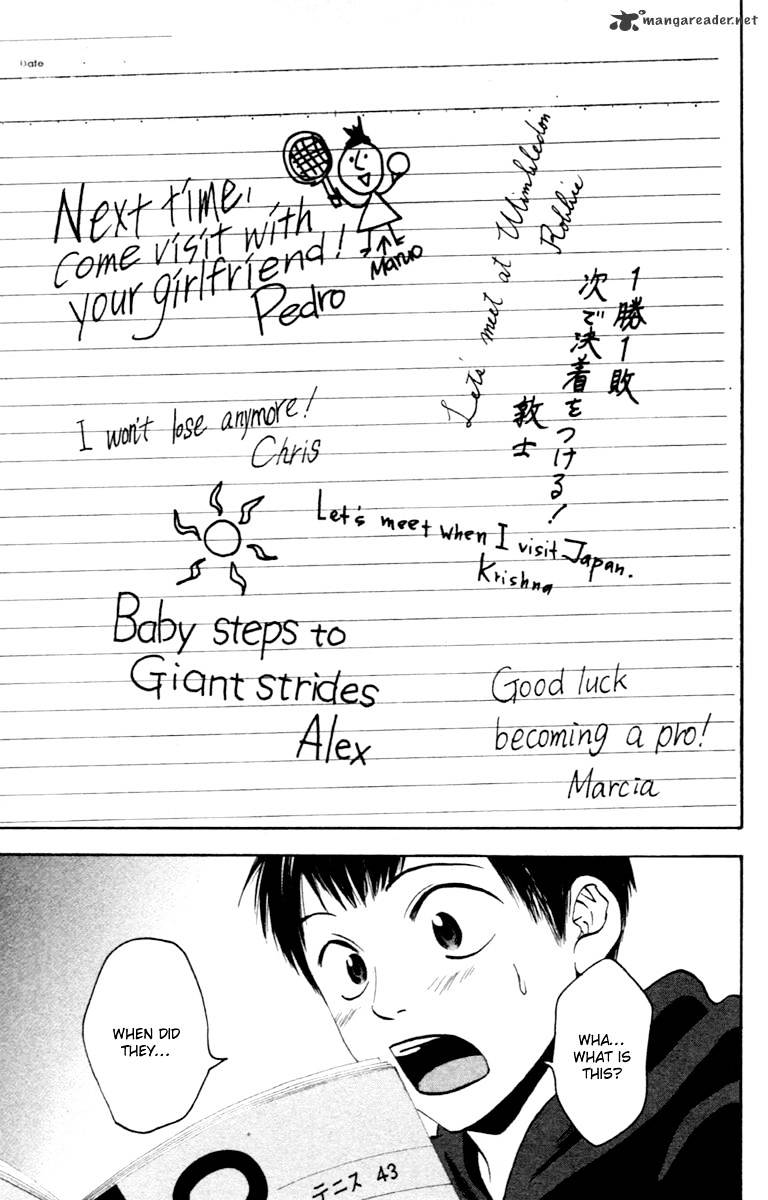 mangareader.net
Date
Next time,
come visit with
your girlfriend!
Pedro
Maruo
Let's meet at Wimbledon
Robbie
1勝1敗
次で決着をつける!
敦士
I won't lose anymore!
Chris
Let's meet when I visit Japan.
Krishna
Baby steps to
Giant strides
Alex
Good luck
becoming a pro!
Marcia
WHA...
WHAT IS
THIS?
WHEN DID
THEY...
テニス 43